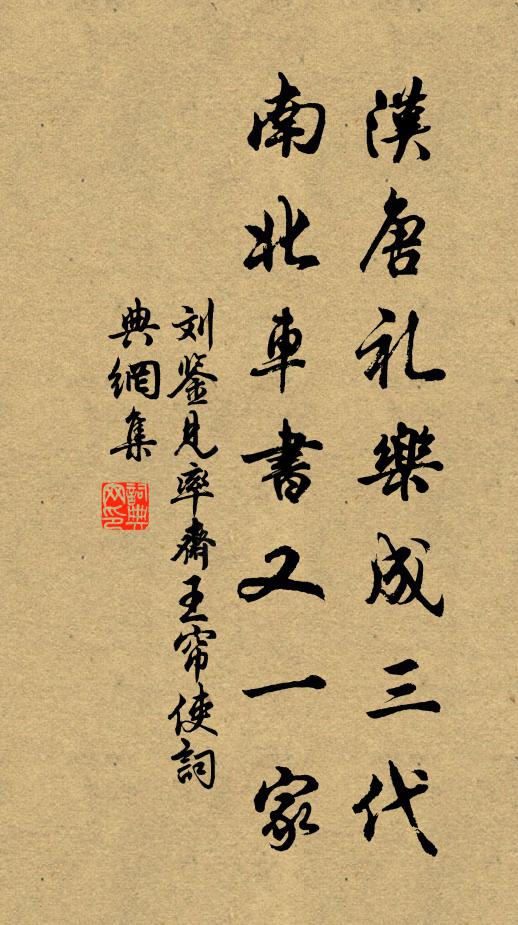 漢唐礼樂成三代
南北車書又一家
刘鉴見率齋王帘使詞
典網集
詞典
网印